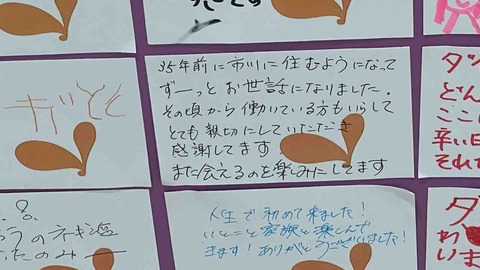 です
35年前に市川に住むようになって
ずーっとお世話になりました。
その頃から働いている方もいらして
とても親切にしていただき
感謝してます
また会えるのを楽しみにしてます
人生で初めて来ました!
いとこと家族と楽しんで
ます!ありがとうございました!
のネギ塩
のみー
ダ
どん
ここ
辛い日
それで
ダ
わ
いま